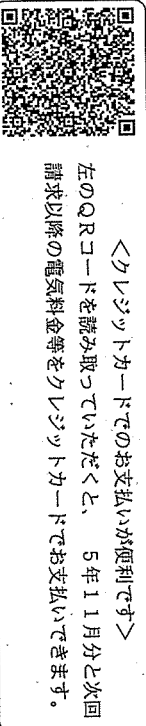 ＜クレジットカードでのお支払いが便利です＞
左のＱＲコードを読み取っていただくと、　５年１１月分と次回
請求以降の電気料金等をクレジットカードでお支払いできます。